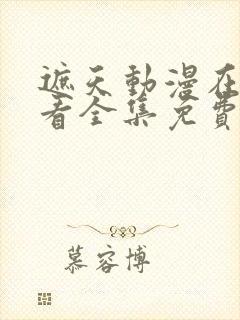 遮天動漫在
看全集免費
慕容博